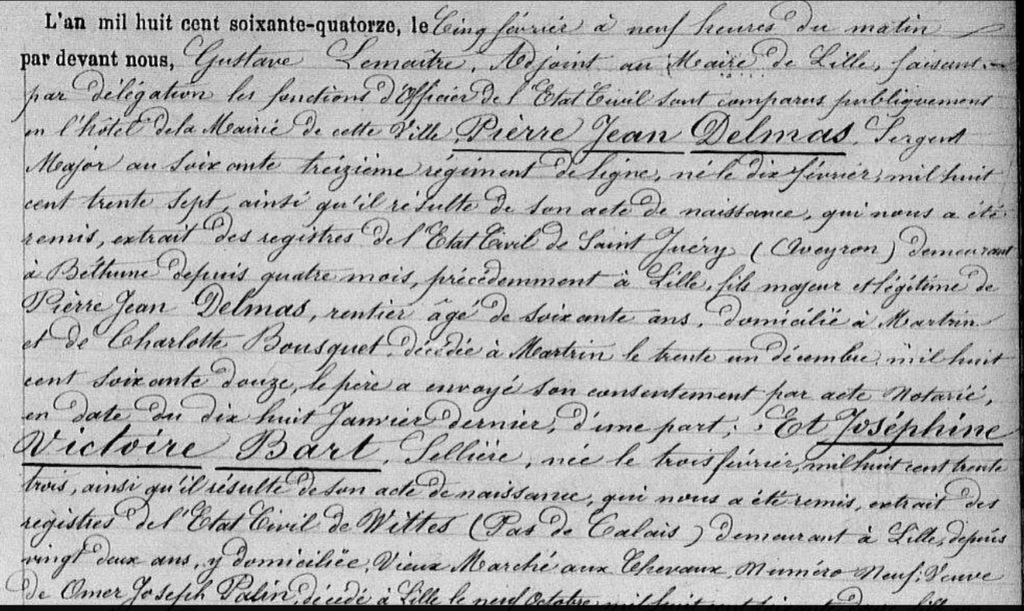 L'an mil huit cent soixante-quatorze, le Cinq février à neuf heures du matin
par devant nous, Gustave Lemaître, Adjoint au Maire de Lille, faisant
par délégation les fonctions d'Officier de l'Etat Civil sont comparus publiquement
en l'hôtel de la Mairie de cette Ville Pierre Jean Delmas, Sergent
Major au soixante treizième régiment de ligne, né le dix février, mil huit
cent trente sept, ainsi qu'il résulte de son acte de naissance, qui nous a été
remis, extrait des registres de l'Etat Civil de Saint Juéry (Aveyron) demeurant
à Béthune depuis quatre mois, précédemment à Lille, fils majeur et légitime de
Pierre Jean Delmas, rentier âgé de soixante ans, domicilié à Martrin
et de Charlotte Bousquet, décédée à Martrin le trente un décembre, mil huit
cent soixante douze, le père a envoyé son consentement par acte Notarié,
en date du dix huit Janvier dernier, d'une part; Et Joséphine
Victoire Bart, Sellière, née le trois février, mil huit cent trente
trois, ainsi qu'il résulte de son acte de naissance, qui nous a été remis, extrait des
registres de l'Etat Civil de Wittes (Pas de Calais) demeurant à Lille, depuis
vingt deux ans, y domiciliée, Vieux Marché aux Chevaux, Numéro Neuf; Veuve
de Omer Joseph Palin, décédé à Lille le neuf Octobre mil huit cent